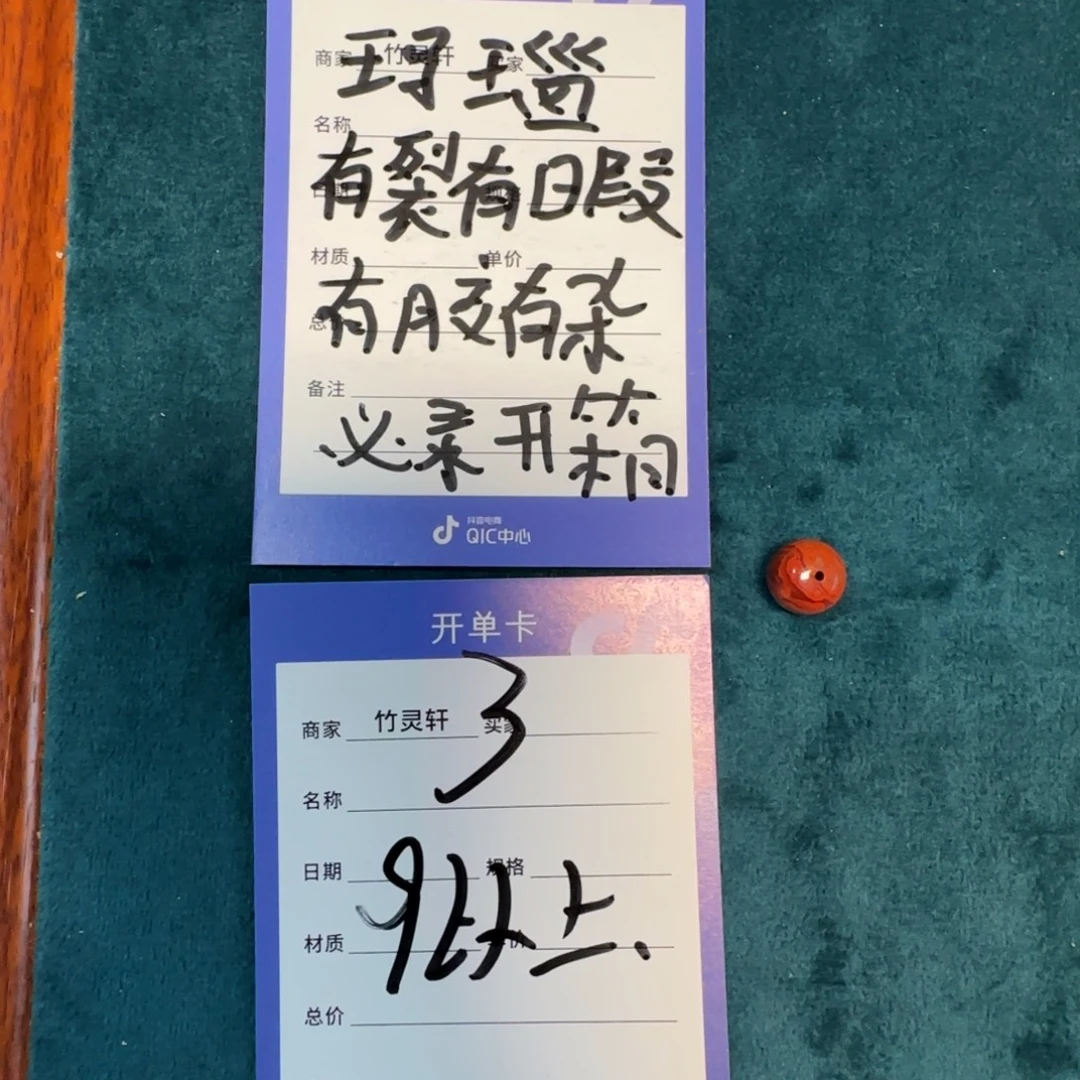 商家 竹灵轩 家
玛瑙
名称
有裂有日暇
材质 单价
有胶有杂
备注
必录开箱
抖音电商
QIC中心
开单卡
3
商家 竹灵轩 买家
名称
日期 规格
9以上.
材质
总价